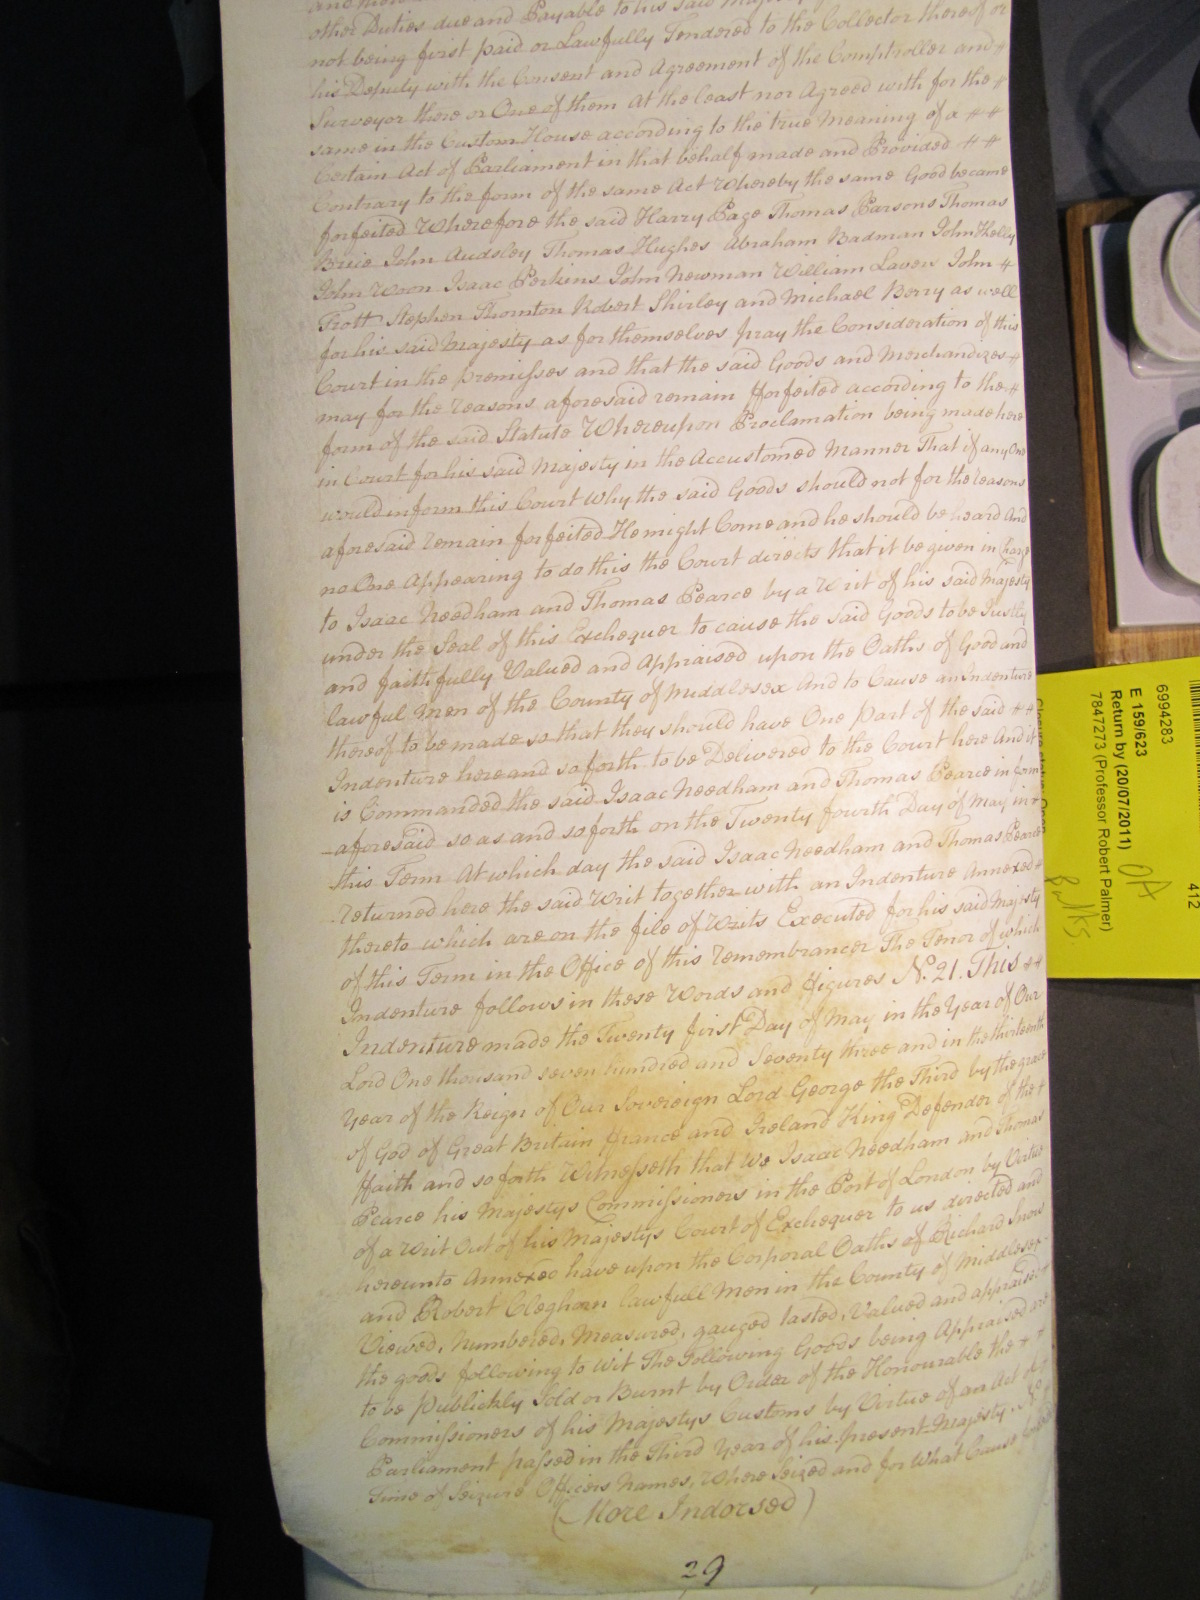 other Duties due and Payable to his said Majesty
not being first paid or Lawfully Tendered to the Collector thereof or
his Deputy with the Consent and Agreement of the Comptroller and #
Surveyor there or One of them At the least nor Agreed with for the #
same in the Custom House according to the true Meaning of a # #
Certain Act of Parliament in that behalf made and Provided # #
Contrary to the form of the same Act Whereby the same Good became
forfeited Wherefore the said Harry Page Thomas Parsons Thomas
Brice John Audsley Thomas Hughes Abraham Badman John Kelly
John Woon Isaac Perkins John Newman William Laver John #
Trott Stephen Thornton Robert Shirley and Michael Berry as well
for his said Majesty as for themselves pray the Consideration of this
Court in the premisses and that the said Goods and Merchandizes #
may for the reasons aforesaid remain fforfeited according to the #
form of the said Statute Whereupon Proclamation being made here
in Court for his said Majesty in the Accustomed Manner That if any One
would inform this Court why the said Goods should not for the reasons
aforesaid remain forfeited He might Come and he should be heard And
no One Appearing to do this the Court directs that it be given in Charge
to Isaac Needham and Thomas Pearce by a Writ of his said Majesty
under the Seal of this Exchequer to cause the said Goods to be Justly
and faithfully Valued and Appraised upon the Oaths of Good and
lawful Men of the County of Middlesex And to Cause an Indenture
thereof to be made so that they should have One part of the said # #
Indenture here and so forth to be Delivered to the Court here And it
is Commanded the said Isaac Needham and Thomas Pearce in form
aforesaid so as and so forth on the Twenty fourth Day of May in #
this Term At which day the said Isaac Needham and Thomas Pearce
returned here the said Writ together with an Indenture Annexed #
thereto which are on the file of Writs Executed for his said Majesty
of this Term in the Office of this Remembrancer The Tenor of which
Indenture follows in these Words and ffigures No. 21. This # #
Indenture made the Twenty first Day of May in the Year of Our
Lord One thousand seven hundred and Seventy three and in the thirteenth
Year of the Reign of Our Sovereign Lord George the Third by the grace
of God of Great Britain france and Ireland King Defender of the #
ffaith and so forth Witnesseth that We Isaac Needham and Thomas
Pearce his Majestys Commissioners in the Port of London by Virtue
of a Writ Out of his Majestys Court of Exchequer to us directed and
hereunto Annexed have upon the Corporal Oaths of Richard Snow
and Robert Cleghorn lawfull Men in the County of Middlesex
Viewed, Numbered, Measured, gauged tasted, Valued and appraised
the goods following to wit The Following Goods being Appraised are
to be Publickly Sold or Burnt by Order of the Honourable the # #
Commissioners of his Majestys Customs by Virtue of an Act of
Parliament passed in the Third Year of his present Majesty. No.
Time of Seizure Officers Names, Where Seized and for What Cause
(More Indorsed)
29
6994283
E 159/623
Return by (20/07/2011)
7847273 (Professor Robert Palmer)
412
OA
Bulks